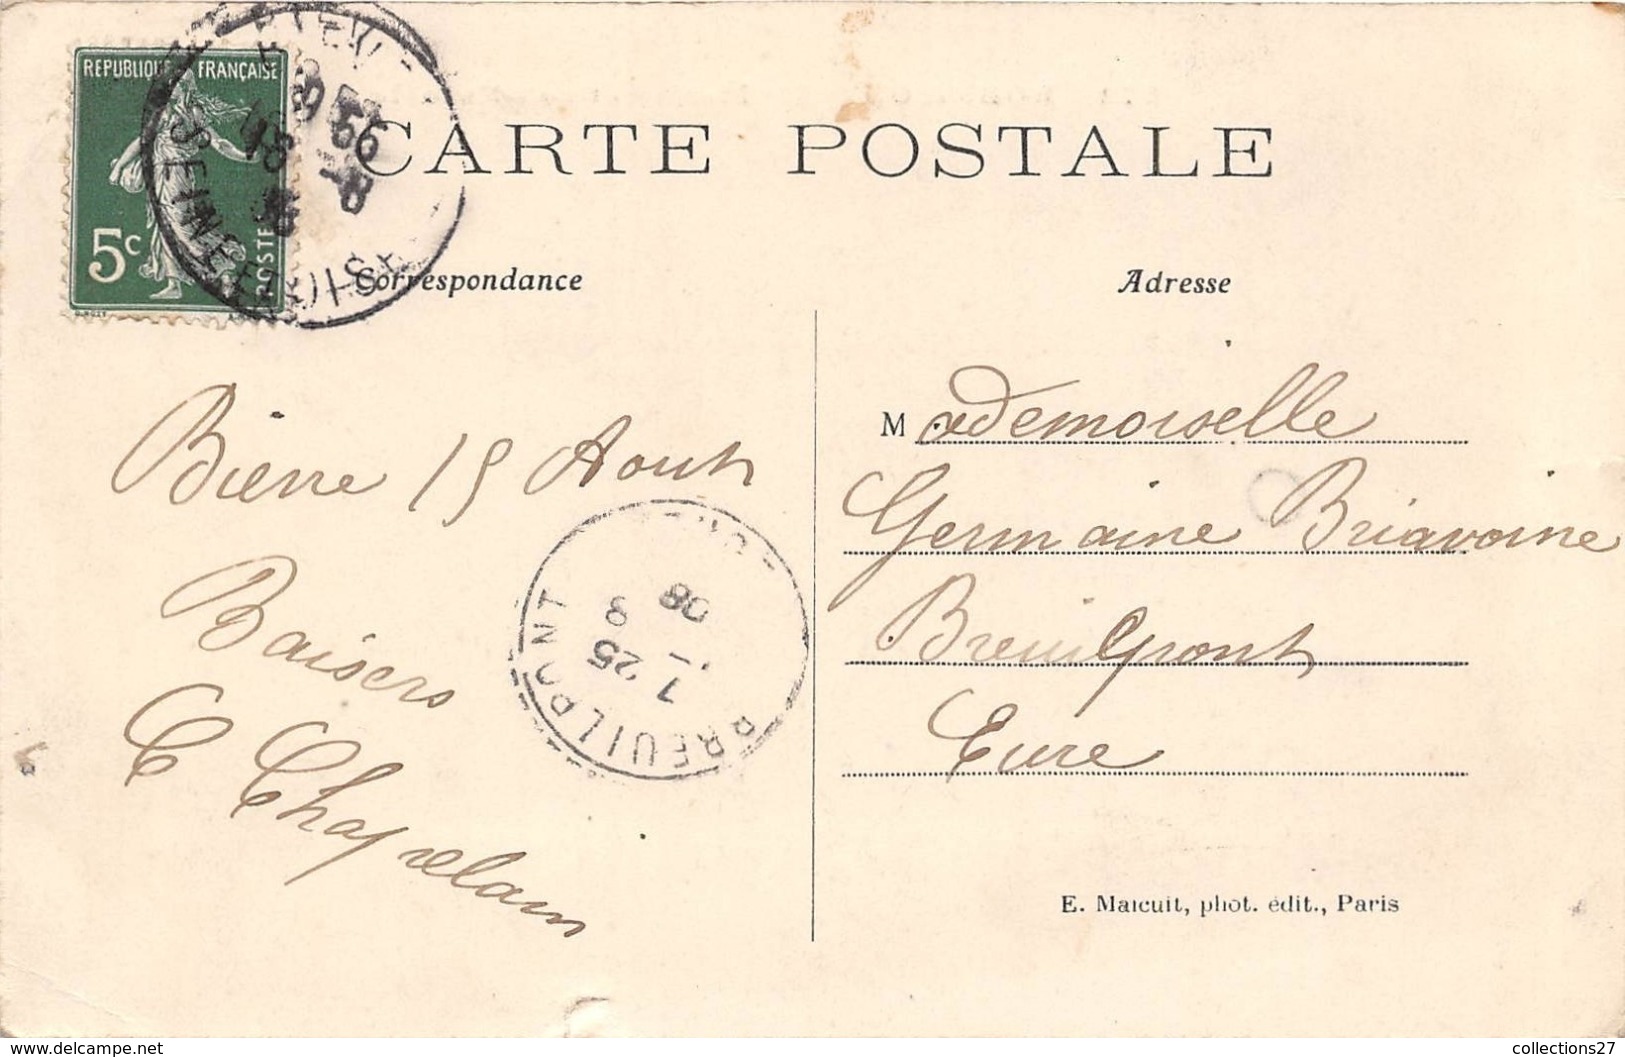 REPUBLIQUE FRANÇAISE
5c
POSTES
SEINE ET OISE
CARTE POSTALE
Correspondance
Adresse
Bièvre 15 Aout
Baisers
C Chapelain
BREUILPONT
1 25
8
08
Mademoiselle
Germaine Briavoine
Breuilpont
Eure
E. Malcuit, phot. édit., Paris
collections27